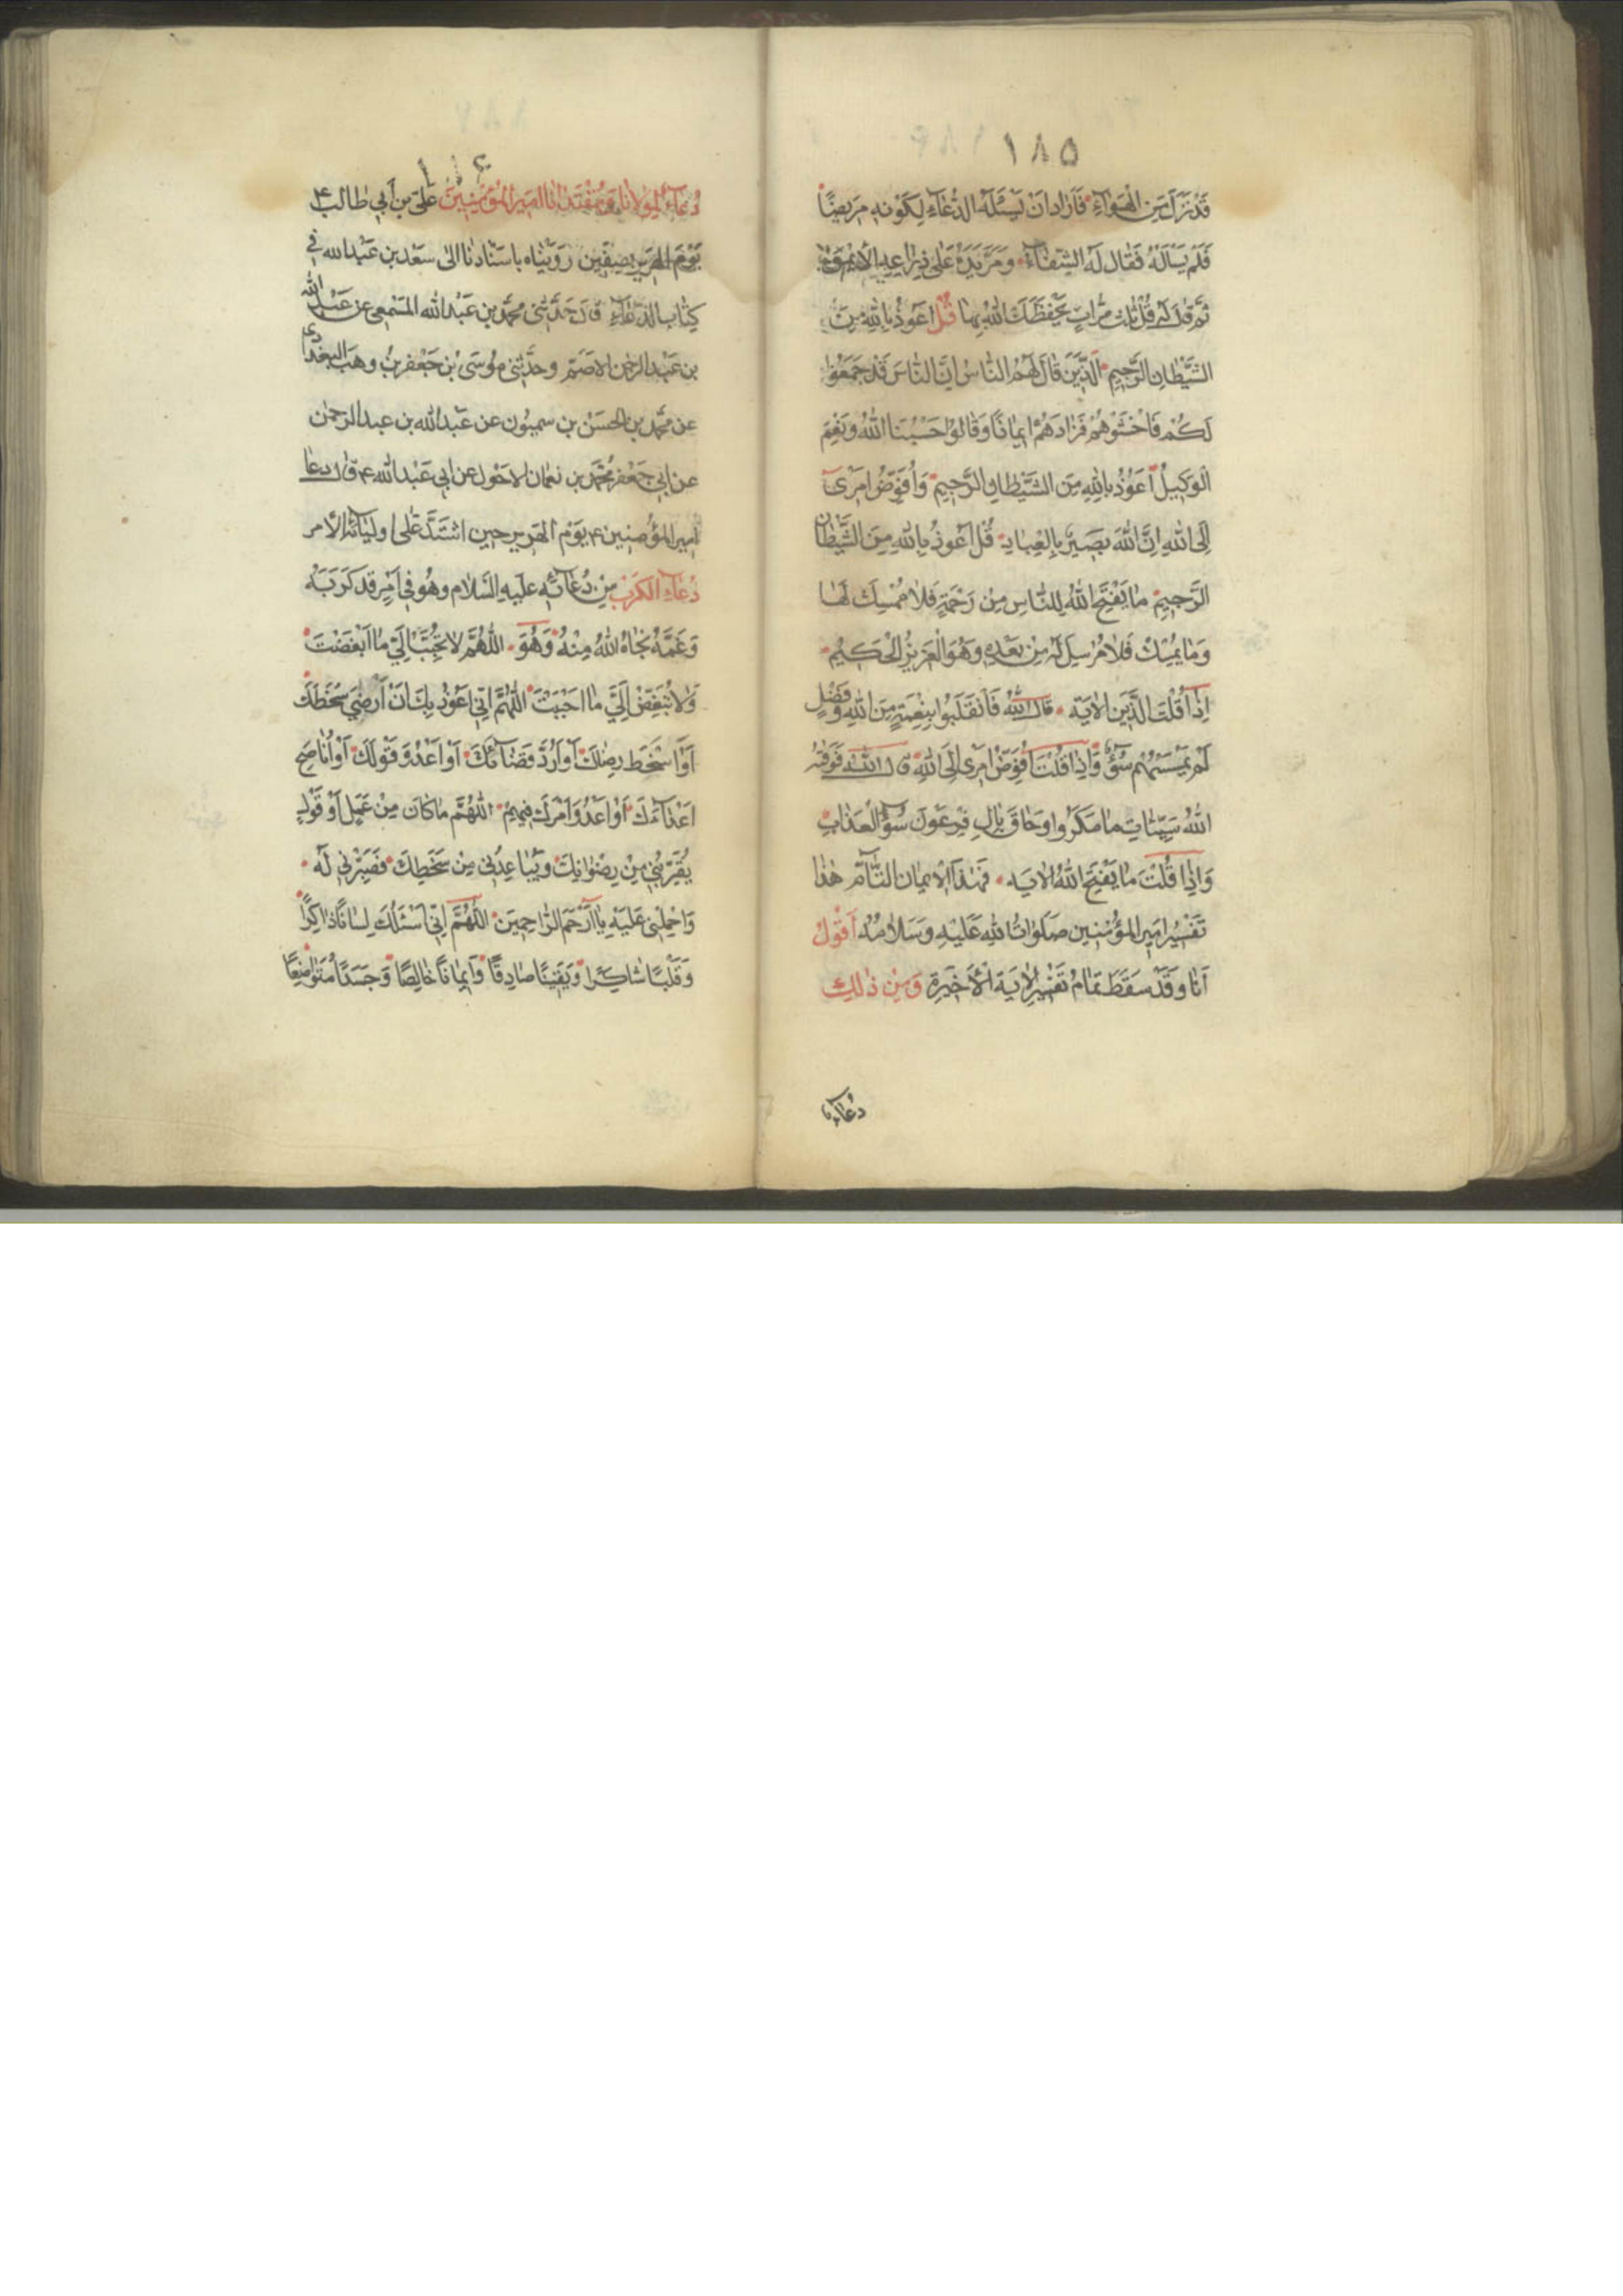 ١٨٥
قَدْ نَزَلَ مِنَ الْهَوَاءِ فَاَرَادَ اَنْ يَسْئَلَهُ الدُّعَاءَ لِكَوْنِهِ مَرِيضًا
فَلَمْ يَسْاَلْهُ فَقَالَ لَهُ الشِّفَاءُ وَمَرَّ يَدَهُ عَلَى ذِرَاعِهِ الْاَيْمَنِ
ثُمَّ قَالَ لَهُ قُلْ ثَلٰثَ مَرَّاتٍ يَحْفَظُكَ اللّٰهُ بِهَا قُلْ اَعُوذُ بِاللّٰهِ مِنَ
الشَّيْطَانِ الرَّجِيمِ اَلَّذِينَ قَالَ لَهُمُ النَّاسُ اِنَّ النَّاسَ قَدْ جَمَعُوا
لَكُمْ فَاخْشَوْهُمْ فَزَادَهُمْ اِيمَانًا وَقَالُوا حَسْبُنَا اللّٰهُ وَنِعْمَ
الْوَكِيلُ اَعُوذُ بِاللّٰهِ مِنَ الشَّيْطَانِ الرَّجِيمِ وَاُفَوِّضُ اَمْرِىٓ
اِلَى اللّٰهِ اِنَّ اللّٰهَ بَصِيرٌ بِالْعِبَادِ قُلْ اَعُوذُ بِاللّٰهِ مِنَ الشَّيْطَانِ
الرَّجِيمِ مَا يَفْتَحِ اللّٰهُ لِلنَّاسِ مِنْ رَحْمَةٍ فَلَا مُمْسِكَ لَهَا
وَمَا يُمْسِكْ فَلَا مُرْسِلَ لَهُ مِنْ بَعْدِهِ وَهُوَ الْعَزِيزُ الْحَكِيمُ
اِذَا قُلْتَ الَّذِينَ الْاٰيَة قَالَ اللّٰهُ فَانْقَلَبُوا بِنِعْمَةٍ مِنَ اللّٰهِ وَفَضْلٍ
لَمْ يَمْسَسْهُمْ سُوٓءٌ وَاِذَا قُلْتَ اُفَوِّضُ اَمْرِى اِلَى اللّٰهِ قَالَ اللّٰهُ فَوَقٰهُ
اللّٰهُ سَيِّئَاتِ مَا مَكَرُوا وَحَاقَ بِاٰلِ فِرْعَوْنَ سُوٓءُ الْعَذَابِ
وَاِذَا قُلْتَ مَا يَفْتَحِ اللّٰهُ الْاٰيَه فَهٰذَا الْاِيمَانُ التَّآمُّ هٰذَا
تَفْسِيرُ اَمِيرِ الْمُؤْمِنِينَ صَلَوَاتُ اللّٰهِ عَلَيْهِ وَسَلَامُهُ اَقُولُ
اَنَا وَقَدْ سَقَطَ تَمَامُ تَفْسِيرِ الْاٰيَةِ الْاَخِيرَةِ وَمِنْ ذٰلِكَ
دُعَاء
دُعَآءٌ لِمَوْلَانَا وَمُقْتَدَانَا اَمِيرِ الْمُؤْمِنِينَ عَلِيِّ بْنِ اَبِي طَالِبٍ ع
يَوْمَ الْهَرِيرِ بِصِفِّينَ رَوَيْنَاهُ بِاِسْنَادِنَا اِلٰى سَعْدِ بْنِ عَبْدِ اللّٰهِ فِي
كِتَابِ الدُّعَآءِ قَالَ حَدَّثَنِي مُحَمَّدُ بْنُ عَبْدِ اللّٰهِ الْمِسْمَعِي عَنْ عَبْدِ اللّٰهِ
بْنِ عَبْدِ الرَّحْمٰنِ الْاَصَمِّ وَحَدَّثَنِي مُوسَى بْنُ جَعْفَرِ بْنِ وَهَبِ الْبَغْدَادِي
عَنْ مُحَمَّدِ بْنِ الْحَسَنِ بْنِ سَمِيُّونَ عَنْ عَبْدِ اللّٰهِ بْنِ عَبْدِ الرَّحْمٰنِ
عَنْ اَبِي جَعْفَرٍ مُحَمَّدِ بْنِ نُعْمَانَ الْاَحْوَلِ عَنْ اَبِي عَبْدِ اللّٰهِ ع قَالَ دَعَا
اَمِيرُ الْمُؤْمِنِينَ ع يَوْمَ الْهَرِيرِ حِينَ اشْتَدَّ عَلٰى اَوْلِيَائِهِ الْاَمْرُ
دُعَاءَ الْكَرْبِ مِنْ دُعَآئِهِ عَلَيْهِ السَّلَامُ وَهُوَ فِي اَمْرٍ قَدْ كَرَبَهُ
وَغَمَّهُ نَجَاهُ اللّٰهُ مِنْهُ وَهُوَ اَللّٰهُمَّ لَا تُحَبِّبْ اِلَيَّ مَا اَبْغَضْتَ
وَلَا تُبَغِّضْ اِلَيَّ مَا اَحْبَبْتَ اَللّٰهُمَّ اِنِّي اَعُوذُ بِكَ اَنْ اَرْضٰى سَخَطَكَ
اَوْ اَسْخَطَ رِضَاكَ اَوْ اَرُدَّ قَضَآئَكَ اَوْ اَعْدُوَ قَوْلَكَ اَوْ اُنَاصِحَ
اَعْدَآئَكَ اَوْ اَعْدُوَ اَمْرَكَ فِيهِمْ اَللّٰهُمَّ مَا كَانَ مِنْ عَمَلٍ اَوْ قَوْلٍ
يُقَرِّبُنِي مِنْ رِضْوَانِكَ وَيُبَاعِدُنِي مِنْ سَخَطِكَ فَصَبِّرْنِي لَهُ
وَاحْمِلْنِي عَلَيْهِ يَا اَرْحَمَ الرَّاحِمِينَ اَللّٰهُمَّ اِنِّي اَسْئَلُكَ لِسَانًا ذَاكِرًا
وَقَلْبًا شَاكِرًا وَيَقِينًا صَادِقًا وَاِيمَانًا خَالِصًا وَجَسَدًا مُتَوَاضِعًا